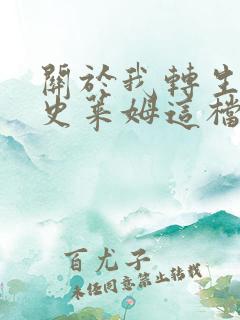 關於我轉生
史萊姆這檔
百尤子
未經同意禁止轉載